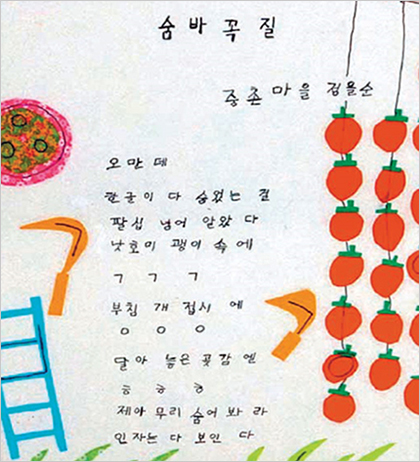 숨 바 꼭 질
중촌 마을 정을순
오만 데
한글이 다 숨었는 걸
팔십 넘어 알았 다
낫호미 괭이 속 에
ㄱ ㄱ ㄱ
부침 개 접시 에
ㅇ ㅇ ㅇ
달아 놓은 곶감 엔
ㅎ ㅎ ㅎ
제아 무리 숨어 봐 라
인자는 다 보인 다